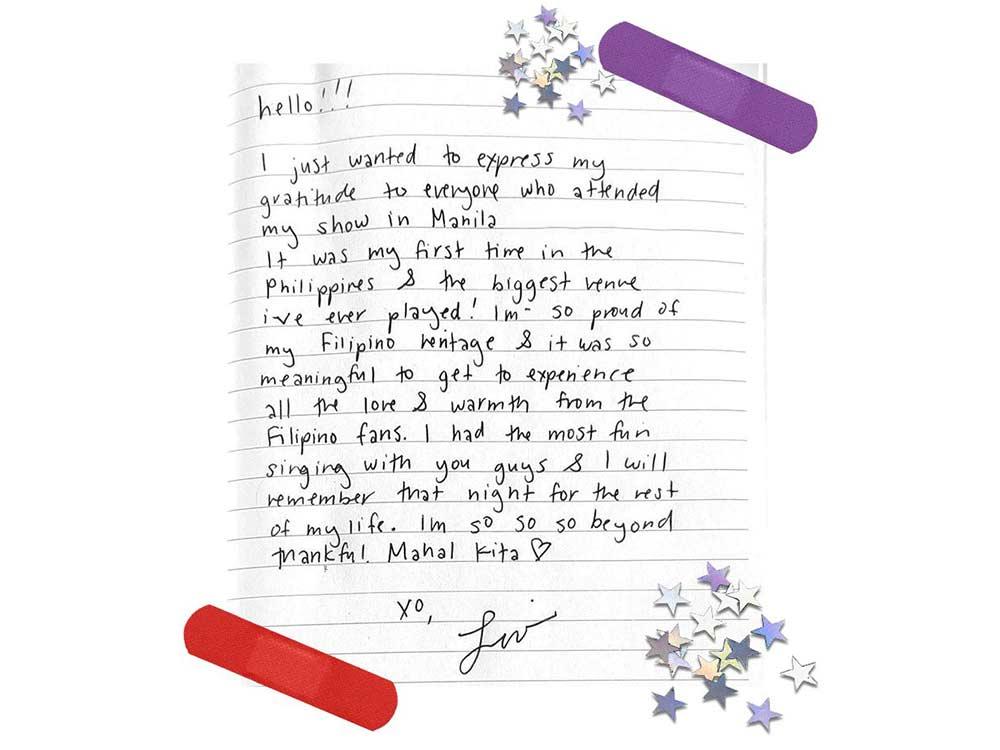 hello!!!
I just wanted to express my
gratitude to everyone who attended
my show in Manila
It was my first time in the
Philippines & the biggest venue
i've ever played! Im so proud of
my Filipino heritage & it was so
meaningful to get to experience
all the love & warmth from the
Filipino fans. I had the most fun
singing with you guys & I will
remember that night for the rest
of my life. Im so so so beyond
thankful! Mahal Kita ♡
xo,
Liv